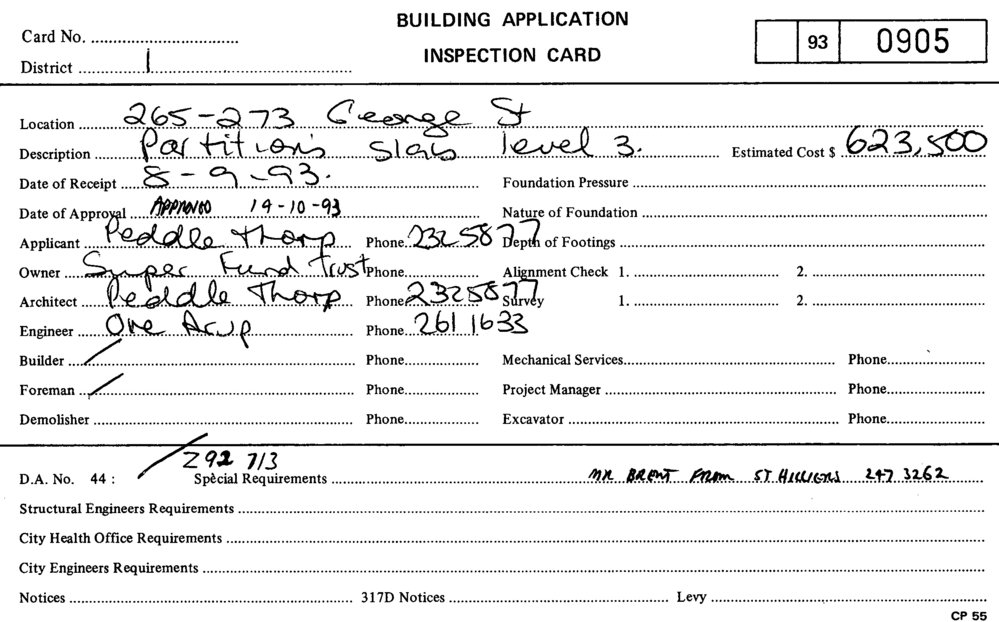 BUILDING APPLICATION
INSPECTION CARD
Card No.
93 0905
District 1
Location 265-273 George St
Description Partitions slab level 3. Estimated Cost $ 623,500
Date of Receipt 8-9-93. Foundation Pressure
Date of Approval APPROVED 19-10-93 Nature of Foundation
Applicant Peddle Thorp Phone 2325877 Depth of Footings
Owner Super Fund Trust Phone Alignment Check 1. 2.
Architect Peddle Thorp Phone 2325877 Survey 1. 2.
Engineer Ove Arup Phone 261 1633
Builder / Phone Mechanical Services Phone
Foreman / Phone Project Manager Phone
Demolisher Phone Excavator Phone
Z92 713
D.A. No. 44 : / Special Requirements MR BRENT FROM ST HILLIERS 247 3262
Structural Engineers Requirements
City Health Office Requirements
City Engineers Requirements
Notices 317D Notices Levy
CP 55